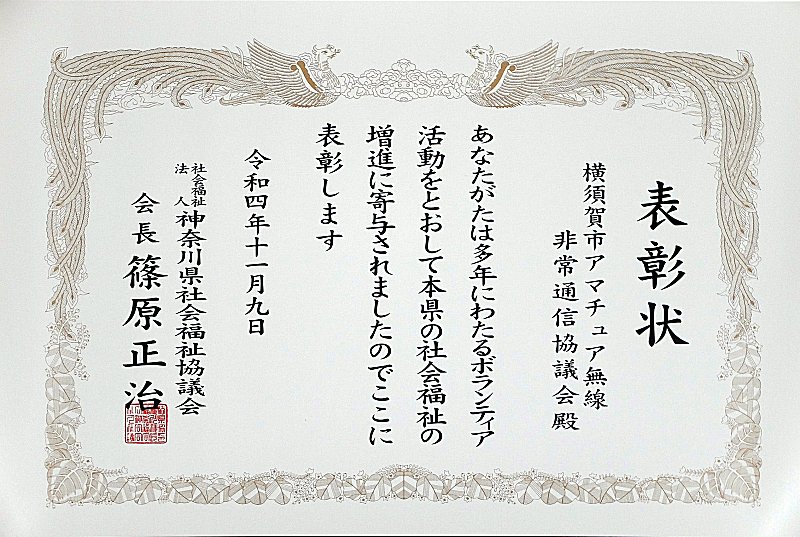 表彰状
横須賀市アマチュア無線
非常通信協議会殿
あなたがたは多年にわたるボランティア
活動をとおして本県の社会福祉の
増進に寄与されましたのでここに
表彰します
令和四年十一月九日
社会福祉
法人
神奈川県社会福祉協議会
会長 篠原正治